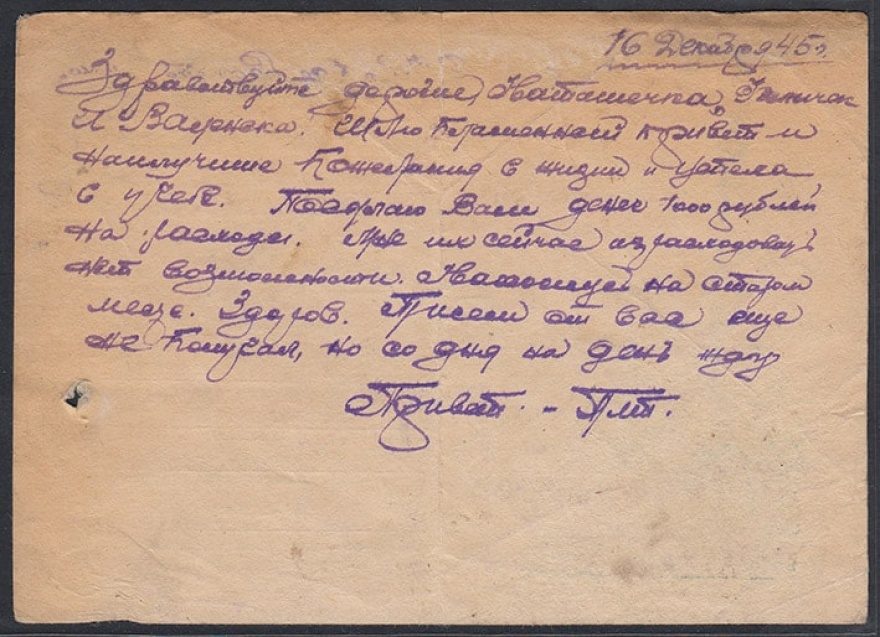 16 Декабря 45 г.
Здравствуйте дорогие, Наташечка,
и Шлю пламенный привет и
наилучшие пожелания в жизни и успеха
в учебе. Посылаю Вам денег 1000 рублей
на расходы. Мне их сейчас израсходовать
нет возможности. Нахожусь на старом
месте. Здоров. Писем от вас еще
не получал, но со дня на день жду
Привет. -